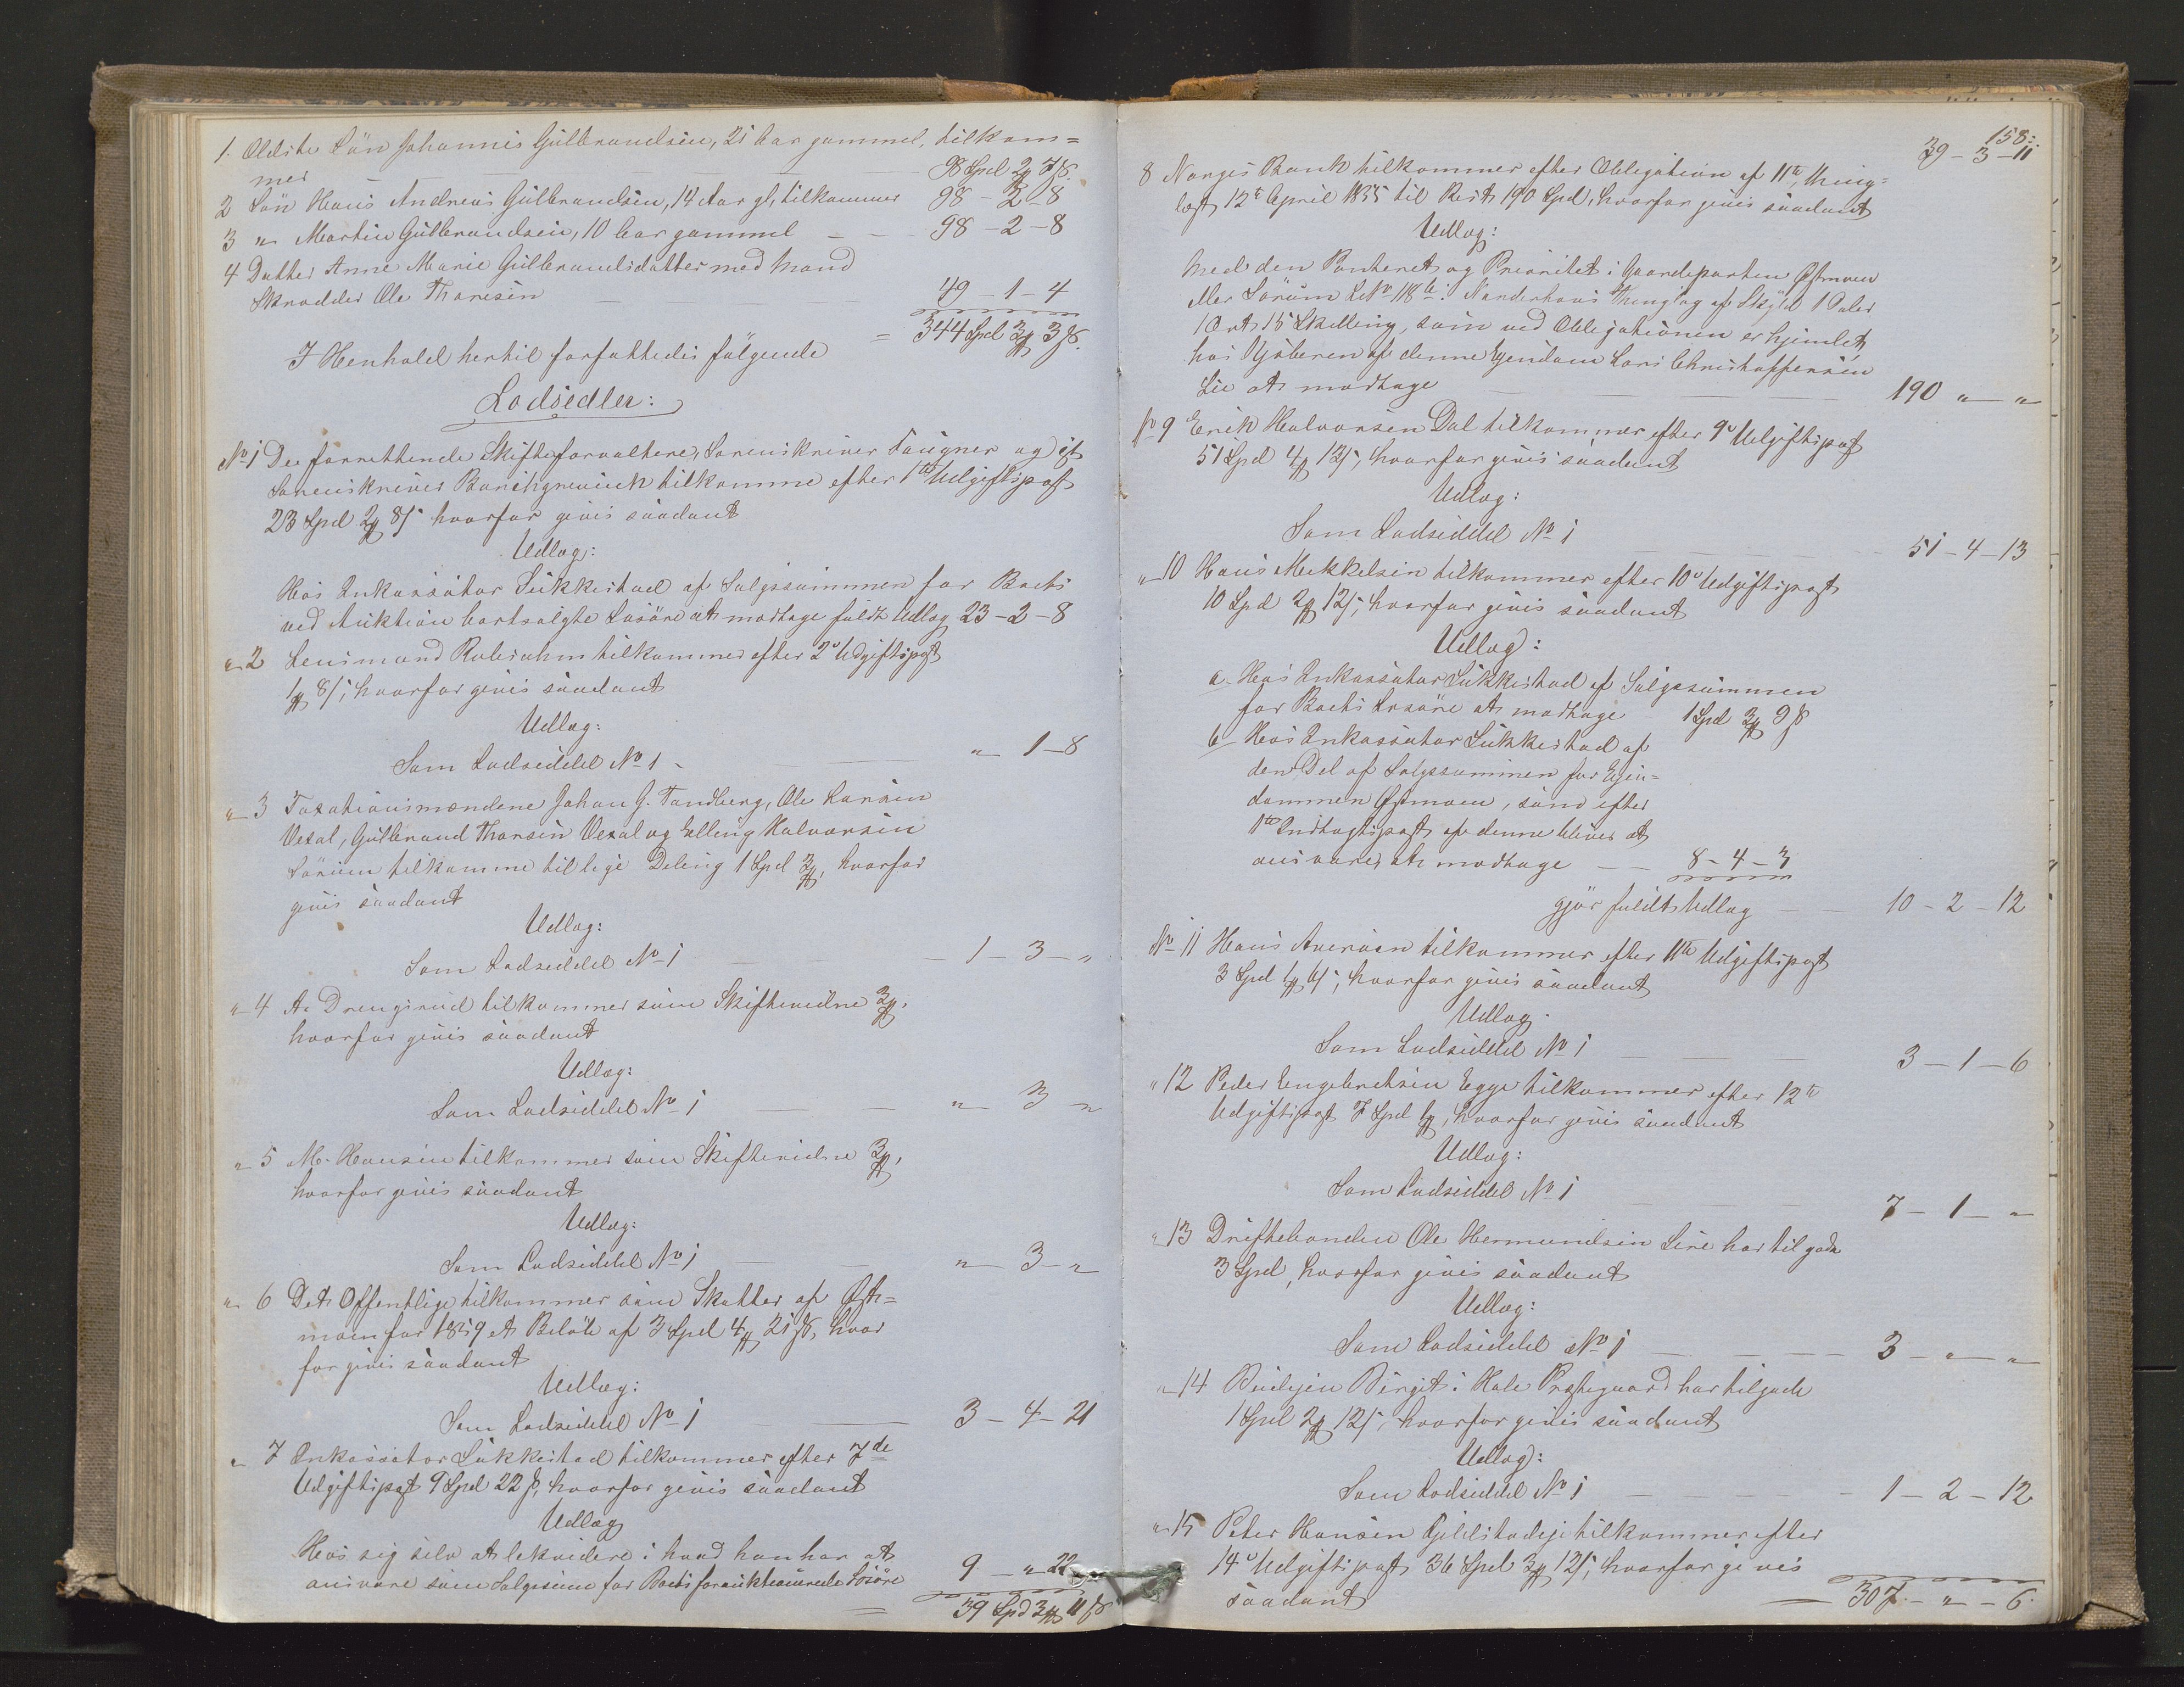 1. Ældste Søn Johannes Gulbrandsen, 21 Aar gammel, tilkom=
mer — 98 Spd 2 ort 7 s.
2 Søn Hans Andreas Gulbrandsen, 14 Aar gl, tilkommer 98 - 2 - 8
3 " Martin Gulbrandsen, 10 Aar gammel — — 98 - 2 - 8
4 Datter Anne Marie Gulbrandsdatter med Mand
Skrædder Ole Thoresen — — 49 - 1 - 4
= 344 Spd 3 ort 3 s.
I Henhold hertil forfattedes følgende
Lodsedler:
No 1 De forrettende Skifteforvaltere, Sorenskriver Faugner og cst
Sorenskriver Borchgrevink tilkomme efter 1ste Udgiftspost
23 Spd 2 ort 8 s hvorfor gives saadant
Udlæg:
Hos Inkassator Lükkestad af Salgssummen for Boets
ved Auktion bortsolgte Løsøre at modtage fuldt Udlæg 23 - 2 - 8
" 2 Lensmand Robsahm tilkommer efter 2den Udgiftspost
1 ort 8 s, hvorfor gives saadant
Udlæg:
Som Lodseddel No 1 — — " 1 - 8
" 3 Taxationsmændene Johan G. Tandberg, Ole Larsen
Vexal, Gulbrand Thorsen Vexal og Elling Halvorsen
Sörum tilkomme til lige Deling 1 Spd 3 ort, hvorfor
gives saadant
Udlæg:
Som Lodseddel No 1 — — 1 - 3 - "
" 4 A. Drengsrud tilkommer som Skiftevidne 3 ort,
hvorfor gives saadant
Udlæg:
Som Lodseddel No 1 — — " 3 "
" 5 M. Hansen tilkommer som Skiftevidne 3 ort,
hvorfor gives saadant
Udlæg:
Som Lodseddel No 1 — — " 3 - "
" 6 Det Offentlige tilkommer som Skatter af Øst=
moen for 1859 et Beløb af 3 Spd 4 ort 21 s, hvor
for gives saadant
Udlæg:
Som Lodseddel No 1 — 3 - 4 - 21
" 7 Inkassator Lükkestad tilkommer efter 7de
Udgiftspost 9 Spd 22 s, hvorfor gives saadant
Udlæg
Hos sig selv at lekvidere i hvad han har at
ansvare som Salgssum for Boets forauktionerede Løsøre 9 - " 22
= 39 Spd 3 ort 11 s
158:
39 - 3 - 11
8 Norges Bank tilkommer efter Obligation af 11te, thing=
læst 12te April 1855 til Rest 190 Spd, hvorfor gives saadant
Udlæg:
Med den Panteret og Prioritet i Gaardeparten Østmoen
eller Sörum LNo 118 b i Norderhovs Thinglag af Skyld 1 Daler
1 Ort 15 Skilling, som ved Obligationen er hjemlet
hos Kjøberen af denne Eiendom Lars Christoffersen
Lie at modtage — 190 " "
No 9 Erik Halvorsen Dal tilkommer efter 9de Udgiftspost
51 Spd 4 ort 13 s, hvorfor gives saadant
Udlæg:
Som Lodseddel No 1 — 51 - 4 - 13
" 10 Hans Mekkelsen tilkommer efter 10de Udgiftspost
10 Spd 2 ort 12 s, hvorfor gives saadant
Udlæg:
a. Hos Inkassator Lükkestad af Salgssummen
for Boets Løsøre at modtage 1 Spd 3 ort 9 s
b Hos Inkassator Lükkestad af
den Del af Salgssummen for Eien=
dommen Østmoen, som efter
1ste Indtægtspost af denne bliver at
ansvare, at modtage — 8 - 4 - 3
gjør fuldt Udlæg — — 10 - 2 - 12
No 11 Hans Aversen tilkommer efter 11te Udgiftspost
3 Spd 1 ort 6 s, hvorfor gives saadant
Udlæg.
Som Lodseddel No 1 — 3 - 1 - 6
" 12 Peder Engebretsen Egge tilkommer efter 12te
Udgiftspost 7 Spd 1 ort, hvorfor gives saadant
Udlæg:
Som Lodseddel No 1 — 7 - 1 - "
" 13 Driftebonden Ole Hermundsen Lere har tilgode
3 Spd, hvorfor gives saadant
Udlæg:
Som Lodseddel No 1 — 3 - " "
" 14 Budejen Birgit i Hole Præstegaard har tilgode
1 Spd 2 ort 12 s, hvorfor gives saadant
Udlæg:
Som Lodseddel No 1 — 1 - 2 - 12
" 15 Peter Hansen Gjeldstadeje tilkommer efter
14de Udgiftspost 36 Spd 3 ort 12 s, hvorfor gives
saadant — 307 - " - 6.